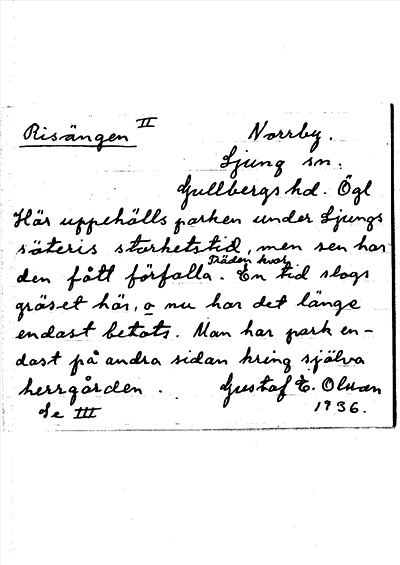 Risängen II
Norrby.
Ljung sn.
Gullbergs hd. Ögl
Här uppehölls parken under Ljungs
säteris storhetstid, men sen har
den fått förfalla. Träden kvar. En tid slogs
gräset här, o nu har det länge
endast betats. Man har park en-
dast på andra sidan kring själva
herrgården.
Gustaf E. Olsson
1936.
Se III